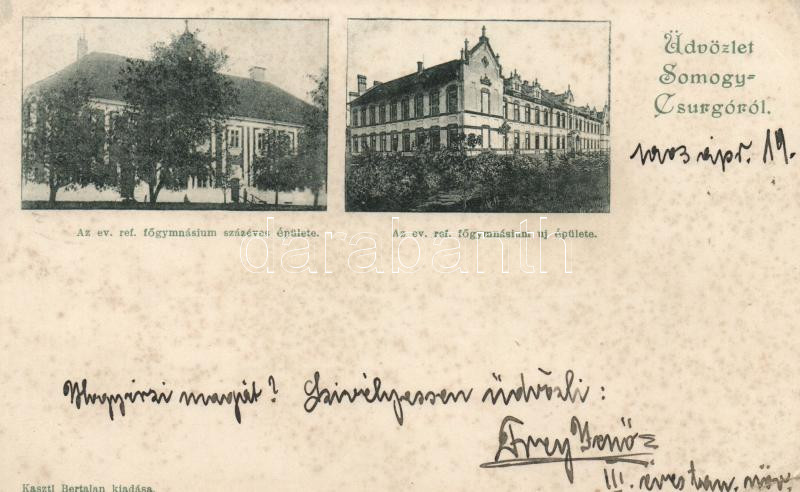 Üdvözlet
Somogy-
Csurgóról.
1903 ápr. 19.
Az ev. ref. főgymnásium százéves épülete.
Az ev. ref. főgymnásium uj épülete.
darabanth
Hogy érzi magát? Szivélyessen üdvözli:
Frey Jenő
III. éves tan. növ.
Kaszti Bertalan kiadása.